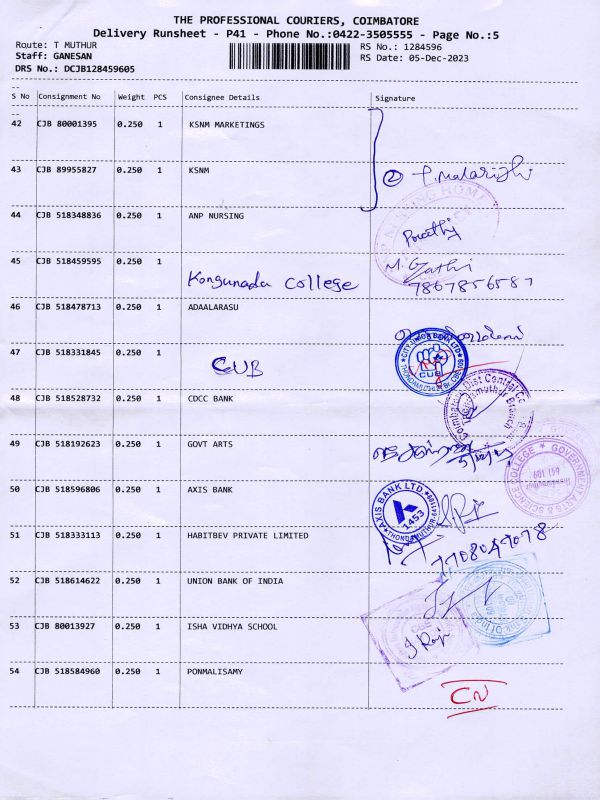 THE PROFESSIONAL COURIERS, COIMBATORE
Delivery Runsheet - P41 - Phone No.:0422-3505555 - Page No.:5
Route: T MUTHUR RS No.: 1284596
Staff: GANESAN RS Date: 05-Dec-2023
DRS No.: DCJB128459605
S No Consignment No Weight PCS Consignee Details Signature
42 CJB 80001395 0.250 1 KSNM MARKETINGS
43 CJB 89955827 0.250 1 KSNM
2
44 CJB 518348836 0.250 1 ANP NURSING
45 CJB 518459595 0.250 1 Kongunadu College
M. Gathi
7867856587
46 CJB 518478713 0.250 1 ADAALARASU
47 CJB 518331845 0.250 1 CUB
CITY UNION BANK LTD
CUB
48 CJB 518528732 0.250 1 CDCC BANK
Coimbatore Dist Central Co
Thondamuthur Branch
49 CJB 518192623 0.250 1 GOVT ARTS
GOVERNMENT ARTS & SCIENCE COLLEGE
641 109
50 CJB 518596806 0.250 1 AXIS BANK
AXIS BANK LTD
1453
51 CJB 518333113 0.250 1 HABITBEV PRIVATE LIMITED
52 CJB 518614622 0.250 1 UNION BANK OF INDIA
53 CJB 80013927 0.250 1 ISHA VIDHYA SCHOOL
J Raji
54 CJB 518584960 0.250 1 PONMALISAMY
CN